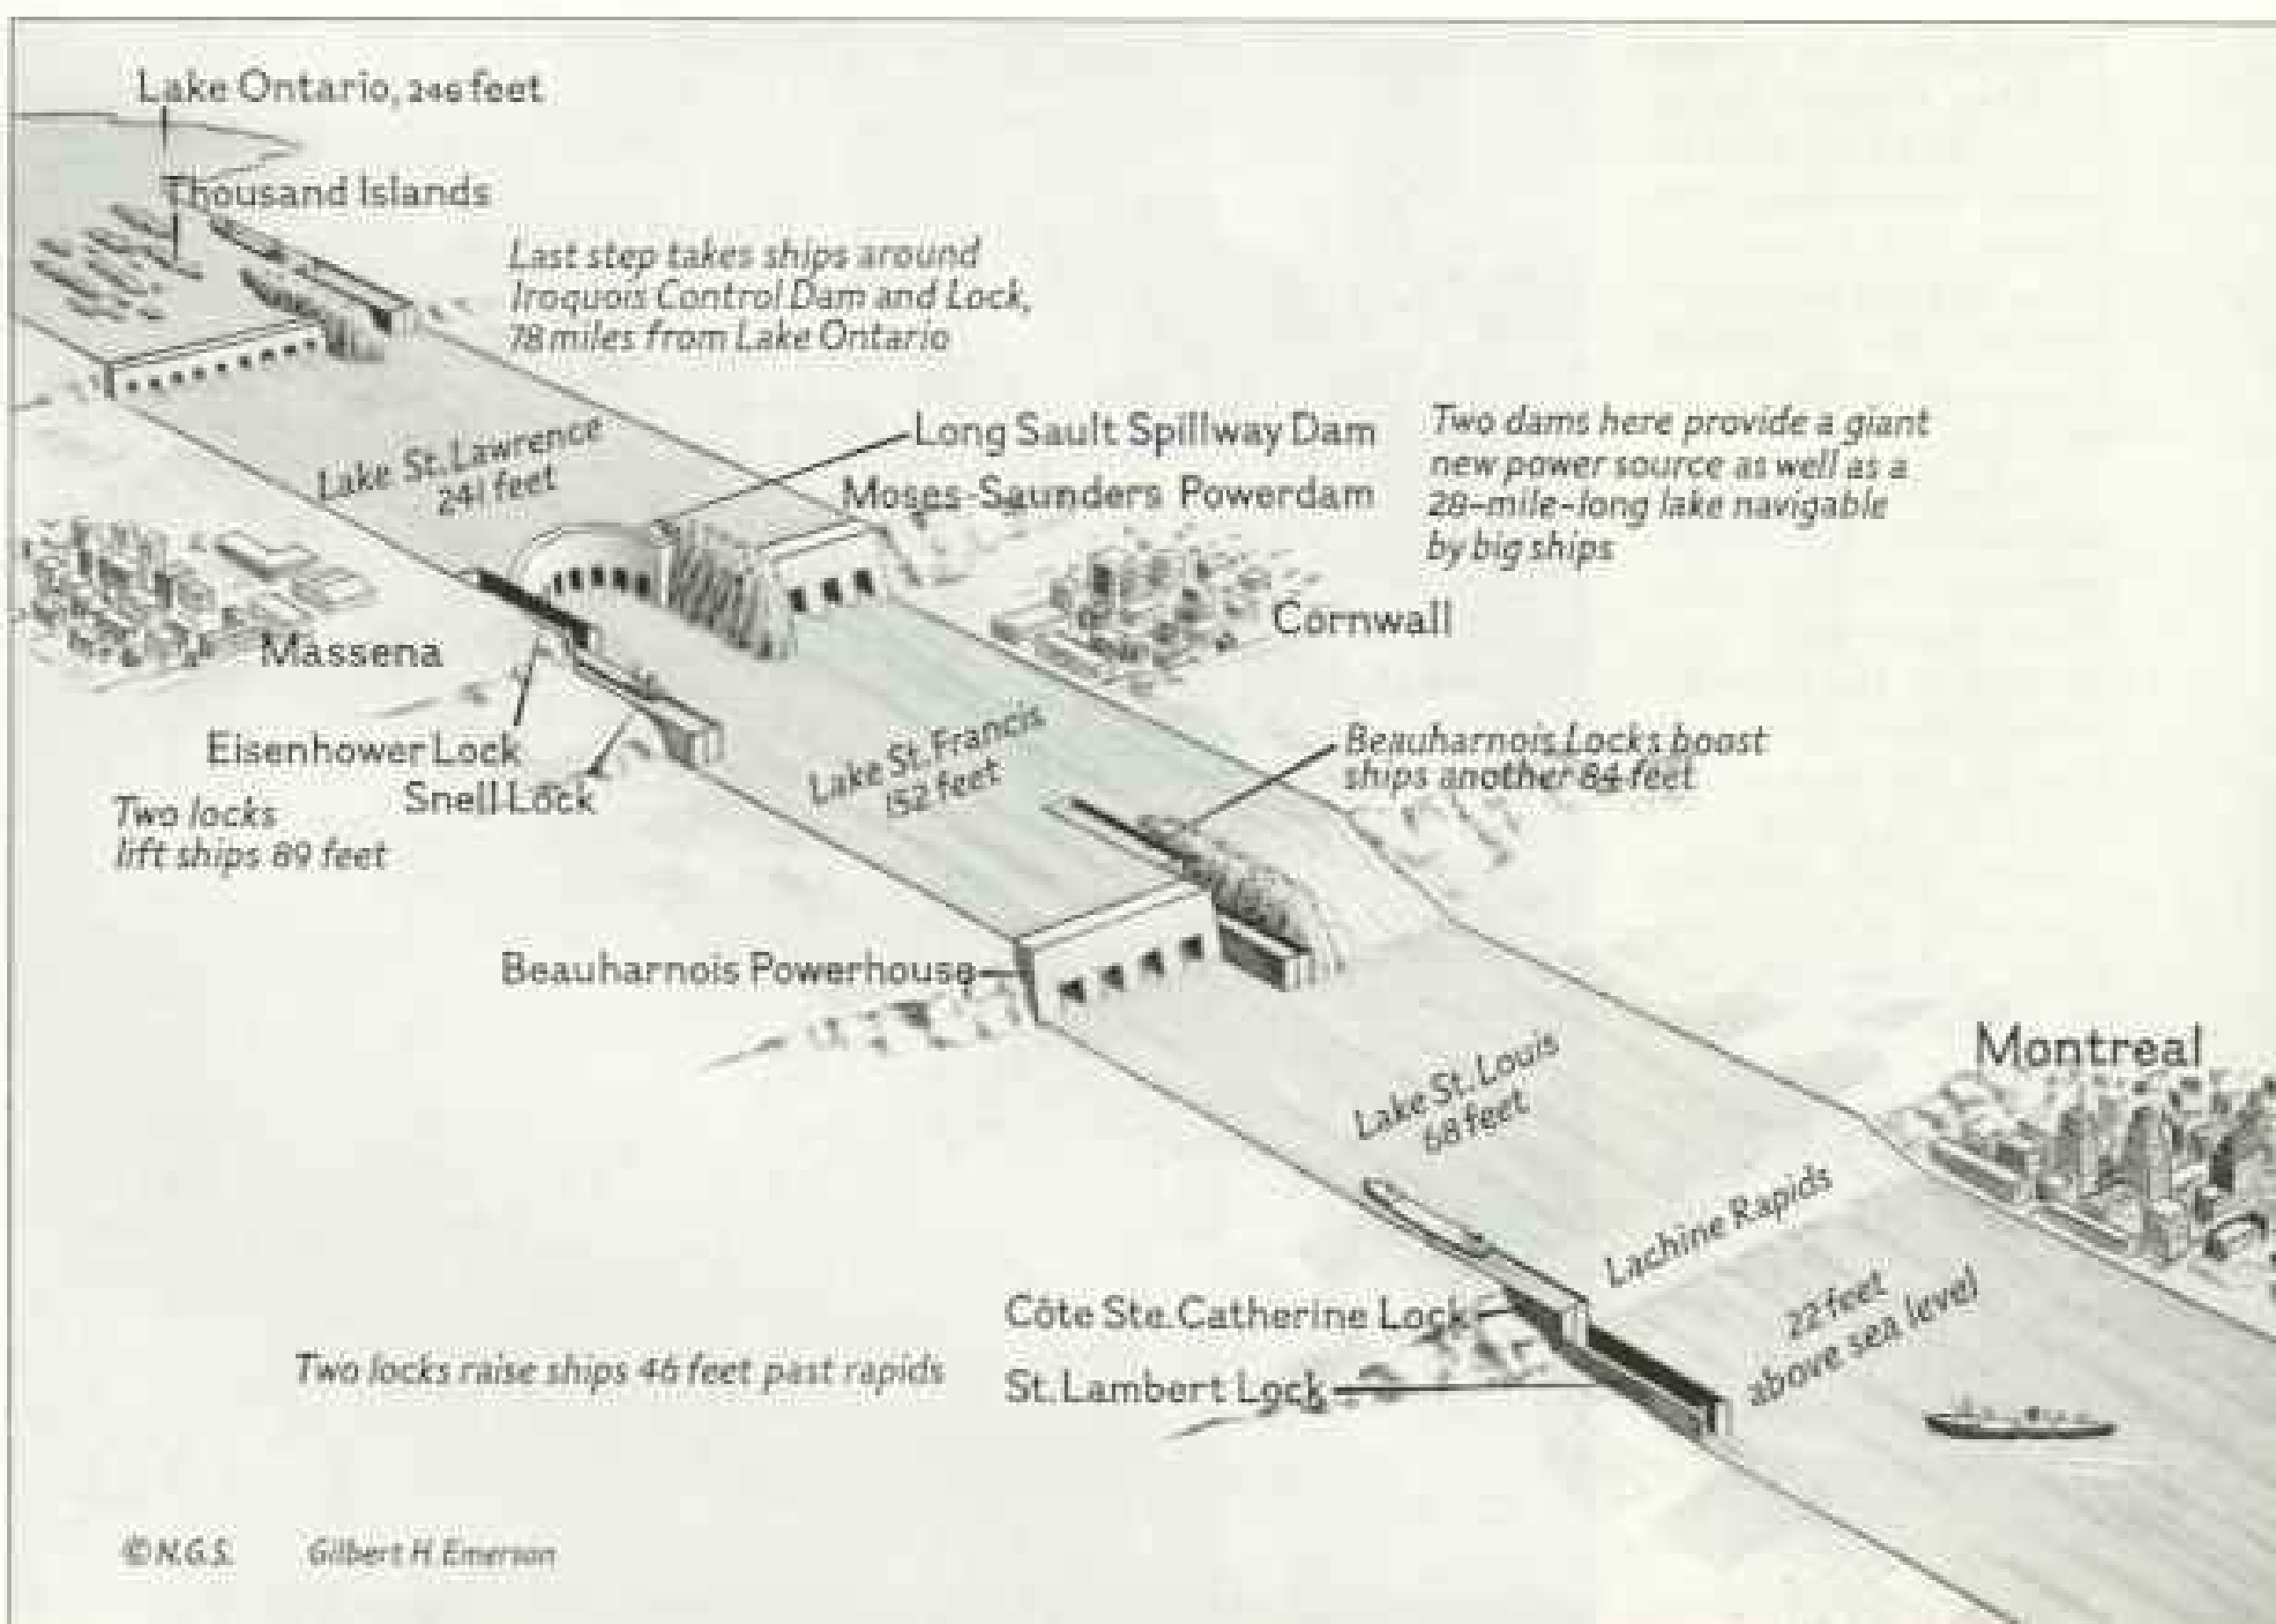 Lake Ontario, 246 feet
Thousand Islands
Last step takes ships around
Iroquois Control Dam and Lock,
78 miles from Lake Ontario
Lake St. Lawrence
241 feet
Long Sault Spillway Dam
Moses-Saunders Powerdam
Two dams here provide a giant
new power source as well as a
28-mile-long lake navigable
by big ships
Cornwall
Massena
Eisenhower Lock
Snell Lock
Two locks
lift ships 89 feet
Lake St. Francis
152 feet
Beauharnois Locks boost
ships another 84 feet
Beauharnois Powerhouse
Lake St. Louis
68 feet
Montreal
Lachine Rapids
22 feet
above sea level
Côte Ste. Catherine Lock
St. Lambert Lock
Two locks raise ships 46 feet past rapids
© N.G.S. Gilbert H. Emerson